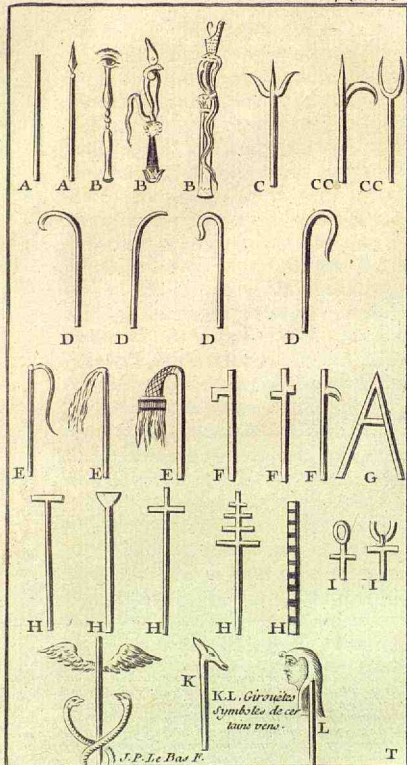 A A B B B C CC CC
D D D D
E E E F F F G
H H H H H I I
K
K.L. Girouëtes
Symboles de cer
tains vens.
L
T
J.P. Le Bas F.